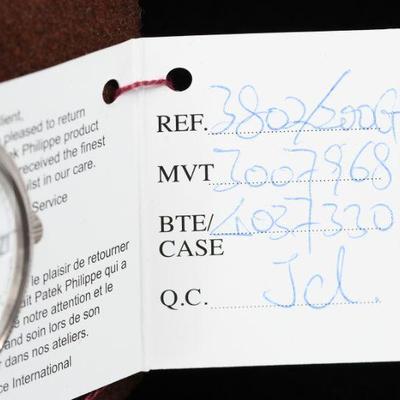 lient,
pleased to return
ek Philippe product
received the finest
ilst in our care.
Service
le plaisir de retourner
dit Patek Philippe qui a
e notre attention et le
and soin lors de son
r dans nos ateliers.
ce International
REF. 3802/200G
MVT 3007968
BTE/
CASE 4037330
Q.C. Jcl.